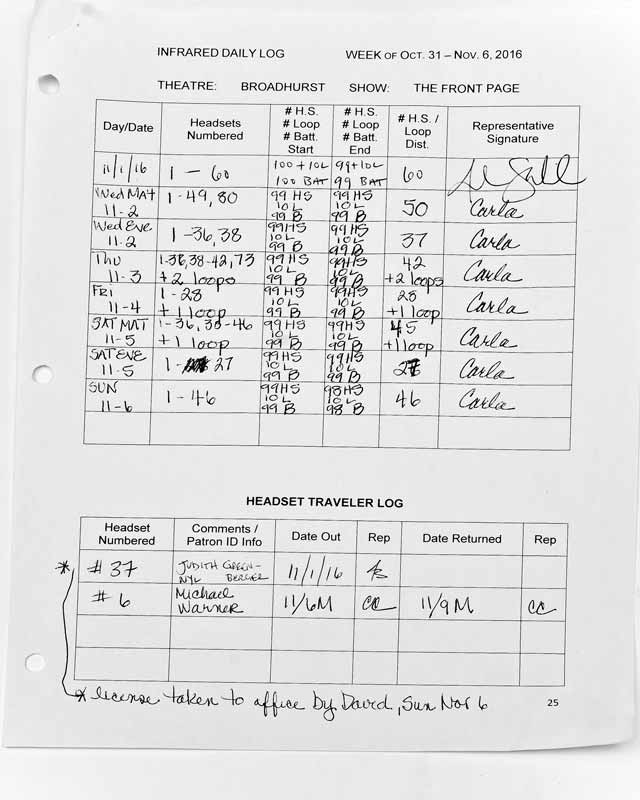 INFRARED DAILY LOG WEEK OF OCT. 31 – NOV. 6, 2016
THEATRE: BROADHURST SHOW: THE FRONT PAGE
Day/Date Headsets Numbered # H.S. # Loop # Batt. Start # H.S. # Loop # Batt. End # H.S. / Loop Dist. Representative Signature
11/1/16 1 – 60 100 + 10L 100 BAT 99+10L 99 BAT 60
Wed MAT 11-2 1-49, 80 99 HS 10 L 99 B 99 HS 10 L 99 B 50 Carla
Wed Eve 11-2 1-36,38 99HS 10L 99 B 99HS 10L 99 B 37 Carla
Thu 11-3 1-36,38-42,73 +2 loops 99HS 10L 99 B 99HS 10 L 99 B 42 +2 loops Carla
Fri 11-4 1-28 +1 loop 99HS 10 L 99 B 99HS 10 L 99 B 28 +1 loop Carla
SAT MAT 11-5 1-36, 38-46 +1 loop 99HS 10 L 99 B 99HS 10 L 99 B 45 +1 loop Carla
SAT EVE 11-5 1- 27 99HS 10 L 99 B 99HS 10 L 99 B 27 Carla
SUN 11-6 1-46 99HS 10 L 99 B 98HS 10 L 98 B 46 Carla
HEADSET TRAVELER LOG
Headset Numbered Comments / Patron ID Info Date Out Rep Date Returned Rep
* #37 JUDITH GREEN- NYL BERGER 11/1/16
#6 Michael Warner 11/6M CC 11/9M CC
* license taken to office by David, Sun Nov 6
25